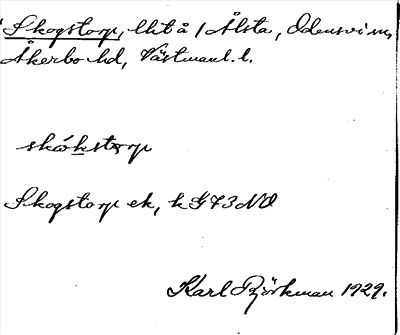 Skogstorp, lht å 1 Ålsta, Odensvi sn,
Åkerbo hd, Västmanl. l.
skókstorp
Skogstorp ek, k G73 NO
Karl Björkman 1929.